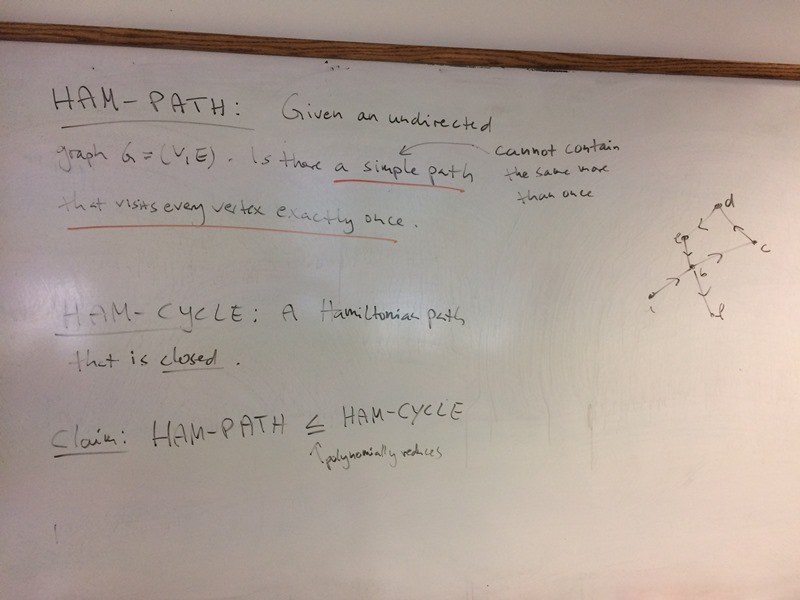 HAM-PATH: Given an undirected
graph G = (V, E). Is there a simple path
that visits every vertex exactly once.
cannot contain
the same more
than once
d
e
b
c
f
HAM-CYCLE: A Hamiltonian path
that is closed.
Claim: HAM-PATH ≤ HAM-CYCLE
↑ polynomially reduces